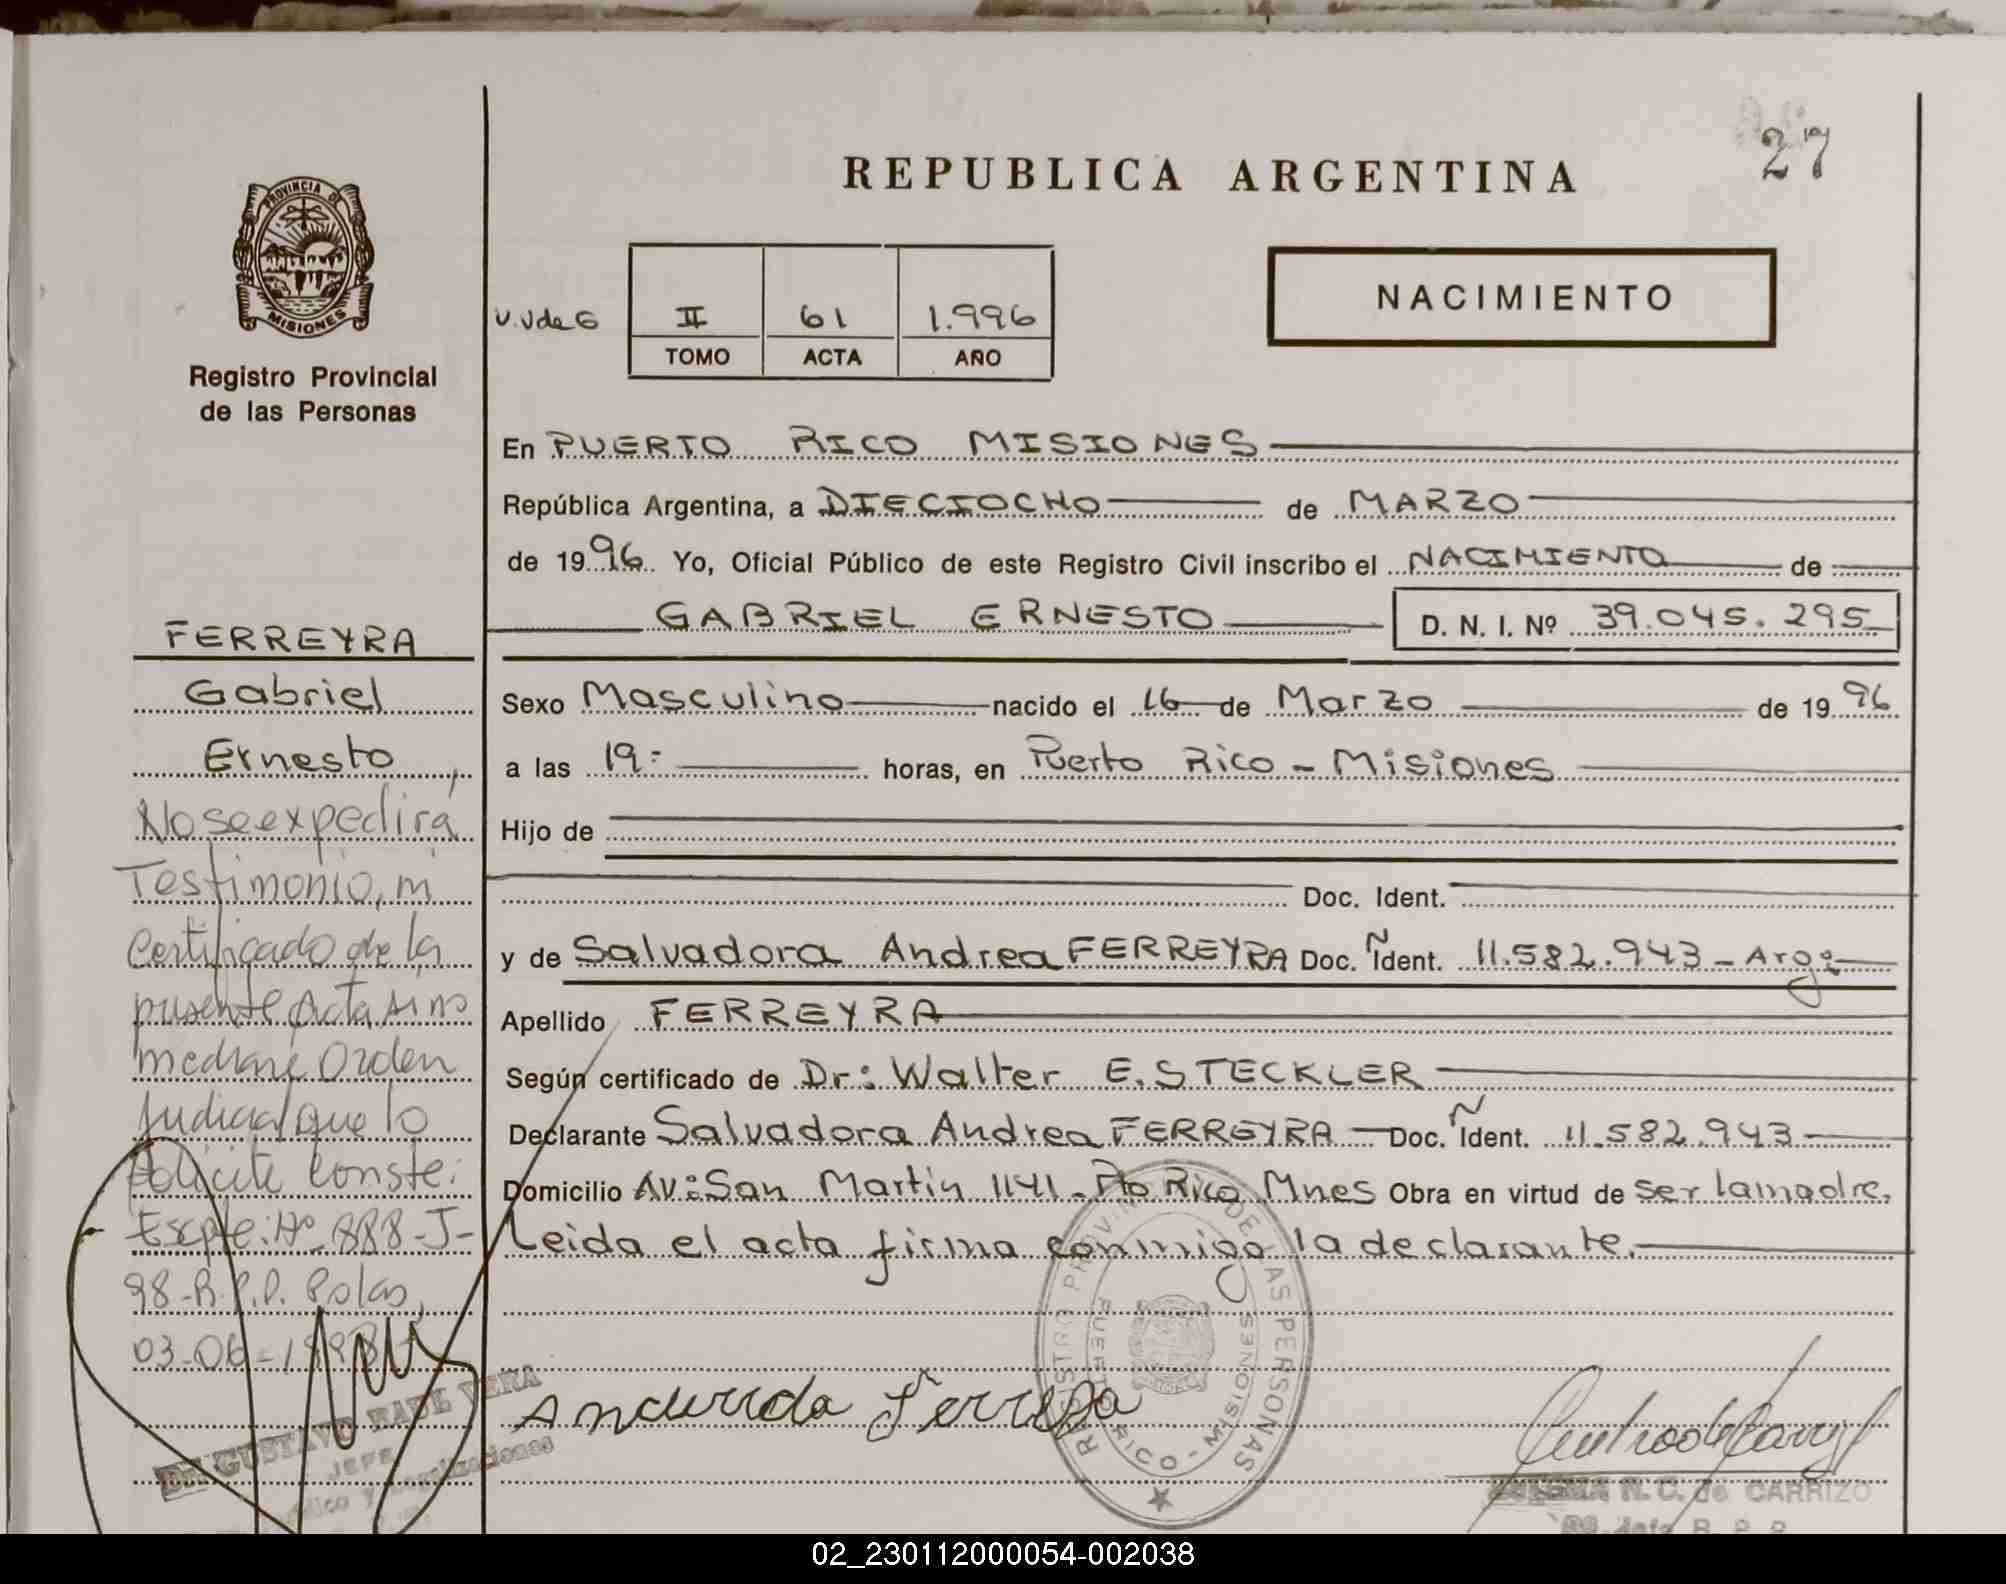 27
REPUBLICA ARGENTINA
PROVINCIA DE
MISIONES
Registro Provincial
de las Personas
V.V de G
II 61 1.996
TOMO ACTA AÑO
NACIMIENTO
En PUERTO RICO MISIONES
República Argentina, a DIECIOCHO de MARZO
de 1996 Yo, Oficial Público de este Registro Civil inscribo el NACIMIENTO de
GABRIEL ERNESTO D. N. I. Nº 39.045.295
Sexo Masculino nacido el 16 de Marzo de 1996
a las 19:- horas, en Puerto Rico - Misiones
Hijo de
Doc. Ident.
y de Salvadora Andrea FERREYRA Doc. Ñ Ident. 11.582.943 - Argº
Apellido FERREYRA
Según certificado de Dr: Walter E. STECKLER
Declarante Salvadora Andrea FERREYRA Doc. Ñ Ident. 11.582.943
Domicilio Av: San Martin 1141 - Pto Rico Mnes Obra en virtud de ser la madre,
Leida el acta firma conmigo la declarante.
FERREYRA
Gabriel
Ernesto
No se expedirá
Testimonio, ni
Certificado de la
presente Acta si no
mediante Orden
Judicial que lo
solicite conste:
Expte: Nº 888-J-
98-R.P.P. Pdas,
03-06-1998
Dr GUSTAVO RAUL VERA
JEFE
REGISTRO PROVINCIAL DE LAS PERSONAS
PUERTO RICO - MISIONES
N. C. de CARRIZO
02_230112000054-002038